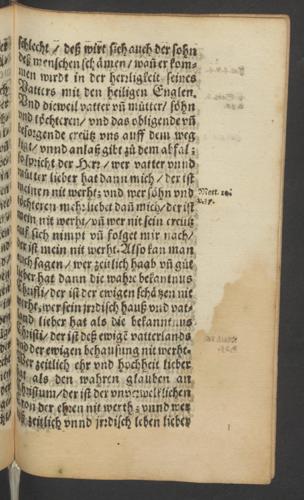 schlecht / deß wirt sich auch der sohn
deß menschen schämen / wañ er kom-
men wirdt in der herligkeit seines
Vatters mit den heiligen Englen.
Vnd dieweil vatter vñ mütter / söhn
vnd töchteren / vnd das obligende vñ
besorgende creütz vns auff dem weg
ligt / vnnd anlaß gibt zu dem abfal ;
so spricht der Herr / wer vatter vnnd
mütter lieber hat dann mich / der ist
meinen nit werht ; vnd wer söhn vnd
töchteren mehr liebet dañ mich / der ist
mein nit werht / vñ wer nit sein creütz
auff sich nimpt vñ folget mir nach /
der ist mein nit werht. Also kan man
auch sagen / wer zeitlich haab vñ güt
lieber hat dann die wahre bekantnus
Christi / der ist der ewigen schätzen nit
werht ; wer sein jrdisch hauß vnd vat-
land lieber hat als die bekantnus
Christi / der ist deß ewigē vatterlands
vnd der ewigen behausung nit werht.
Wer zeitlich ehr vnd hochheit lieber
hat als den wahren glauben an
Christum / der ist der vnverwelklichen
kron der ehren nit werth ; vnnd wer
zeitlich vnnd jrdisch leben lieber
Matt. 10.